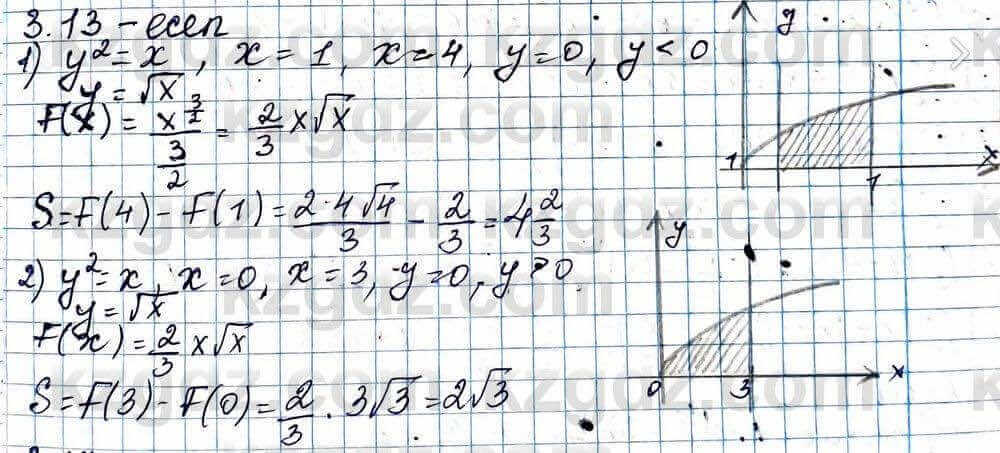 3.13 - есеп
1) y² = x, x = 1, x = 4, y = 0, y < 0
y = √x
F(x) = x^(3/2) / (3/2) = 2/3 x√x
S = F(4) - F(1) = 2·4√4 / 3 - 2/3 = 4 2/3
2) y² = x, x = 0, x = 3, y = 0, y > 0
y = √x
F(x) = 2/3 x√x
S = F(3) - F(0) = 2/3 · 3√3 = 2√3
y
1
1
x
y
0
3
x
kzgdz.com